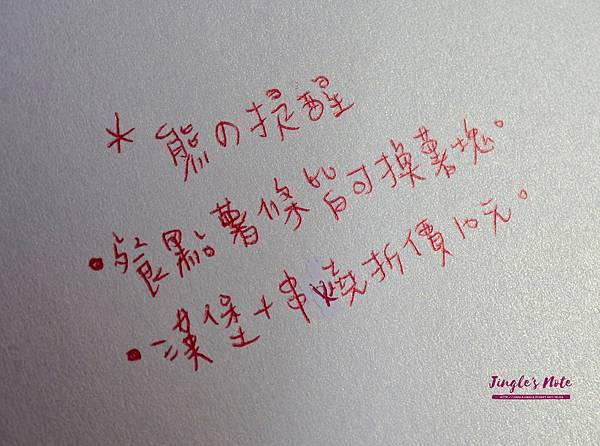 * 熊の提醒
• 餐點薯條皆可換薯塊。
• 漢堡+串燒折價10元。
Jingle's Note